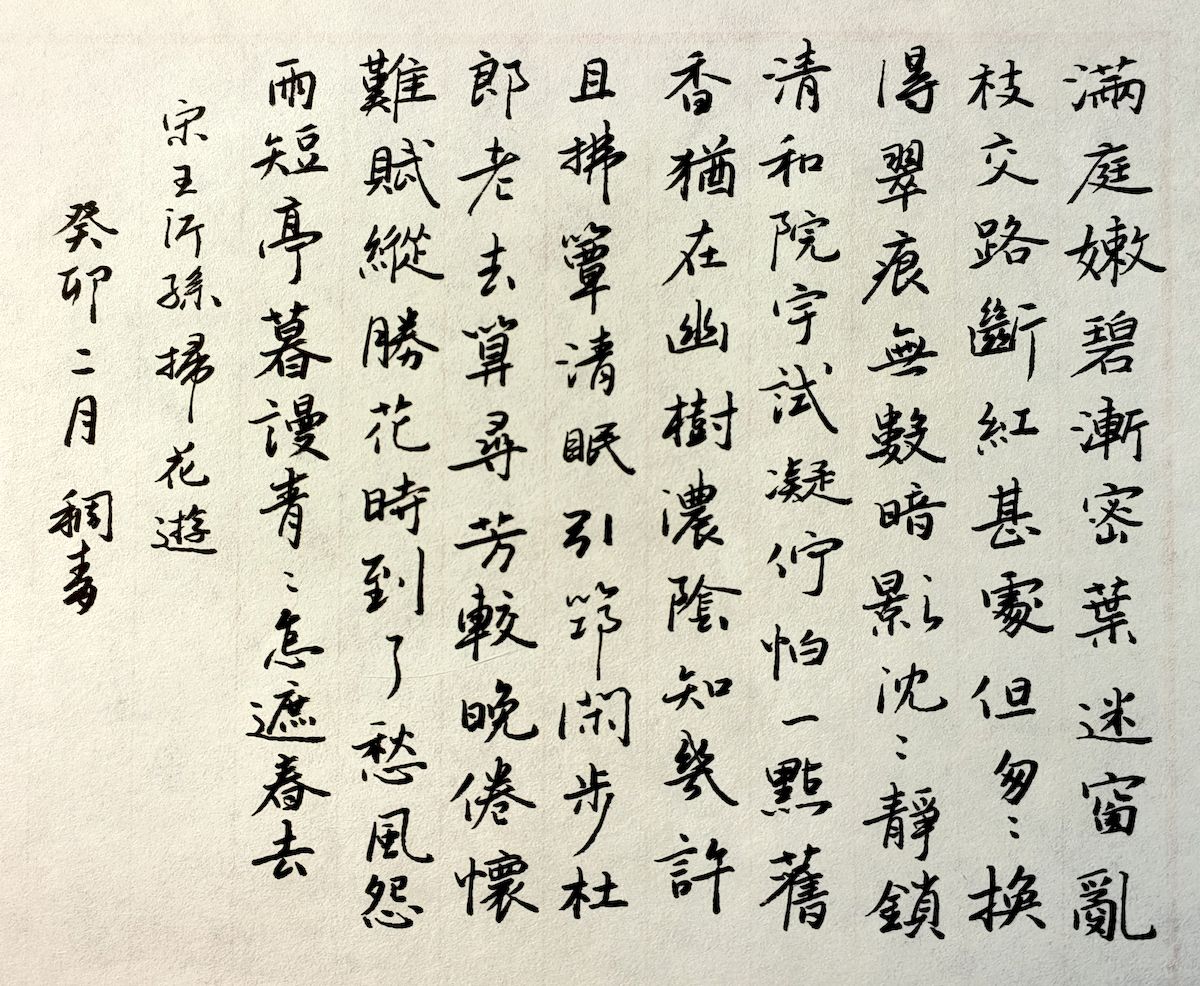 滿庭嫩碧漸密葉迷窗亂
枝交路斷紅甚處但匆〻換
得翠痕無數暗影沈〻靜鎖
清和院宇試凝佇怕一點舊
香猶在幽樹濃陰知幾許
且拂簟清眠引筇閑步杜
郎老去算尋芳較晚倦懷
難賦縱勝花時到了愁風怨
雨短亭暮謾青〻怎遮春去
宋王沂孫掃花遊
癸卯二月 稠毒